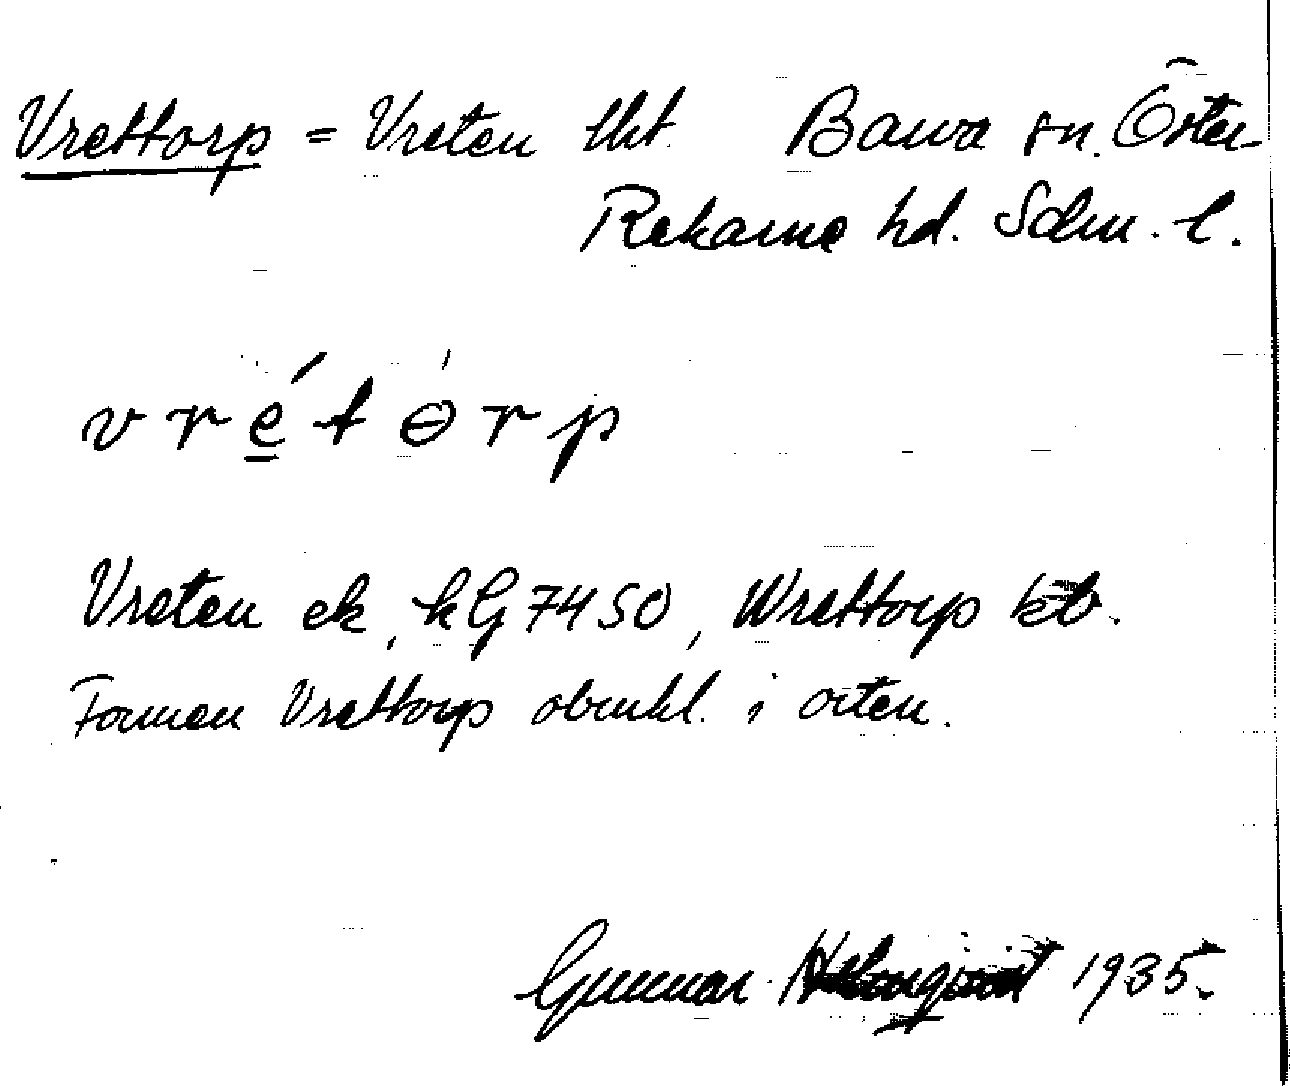 Vrettorp = Vreten lht. Barva sn. Öster-
Rekarne hd. Södm. l.
v r é t ɵ r p
Vreten ek, kG 7450, Wrettorp
Formen Vrettorp obrukl. i orten.
Gunnar 1935.